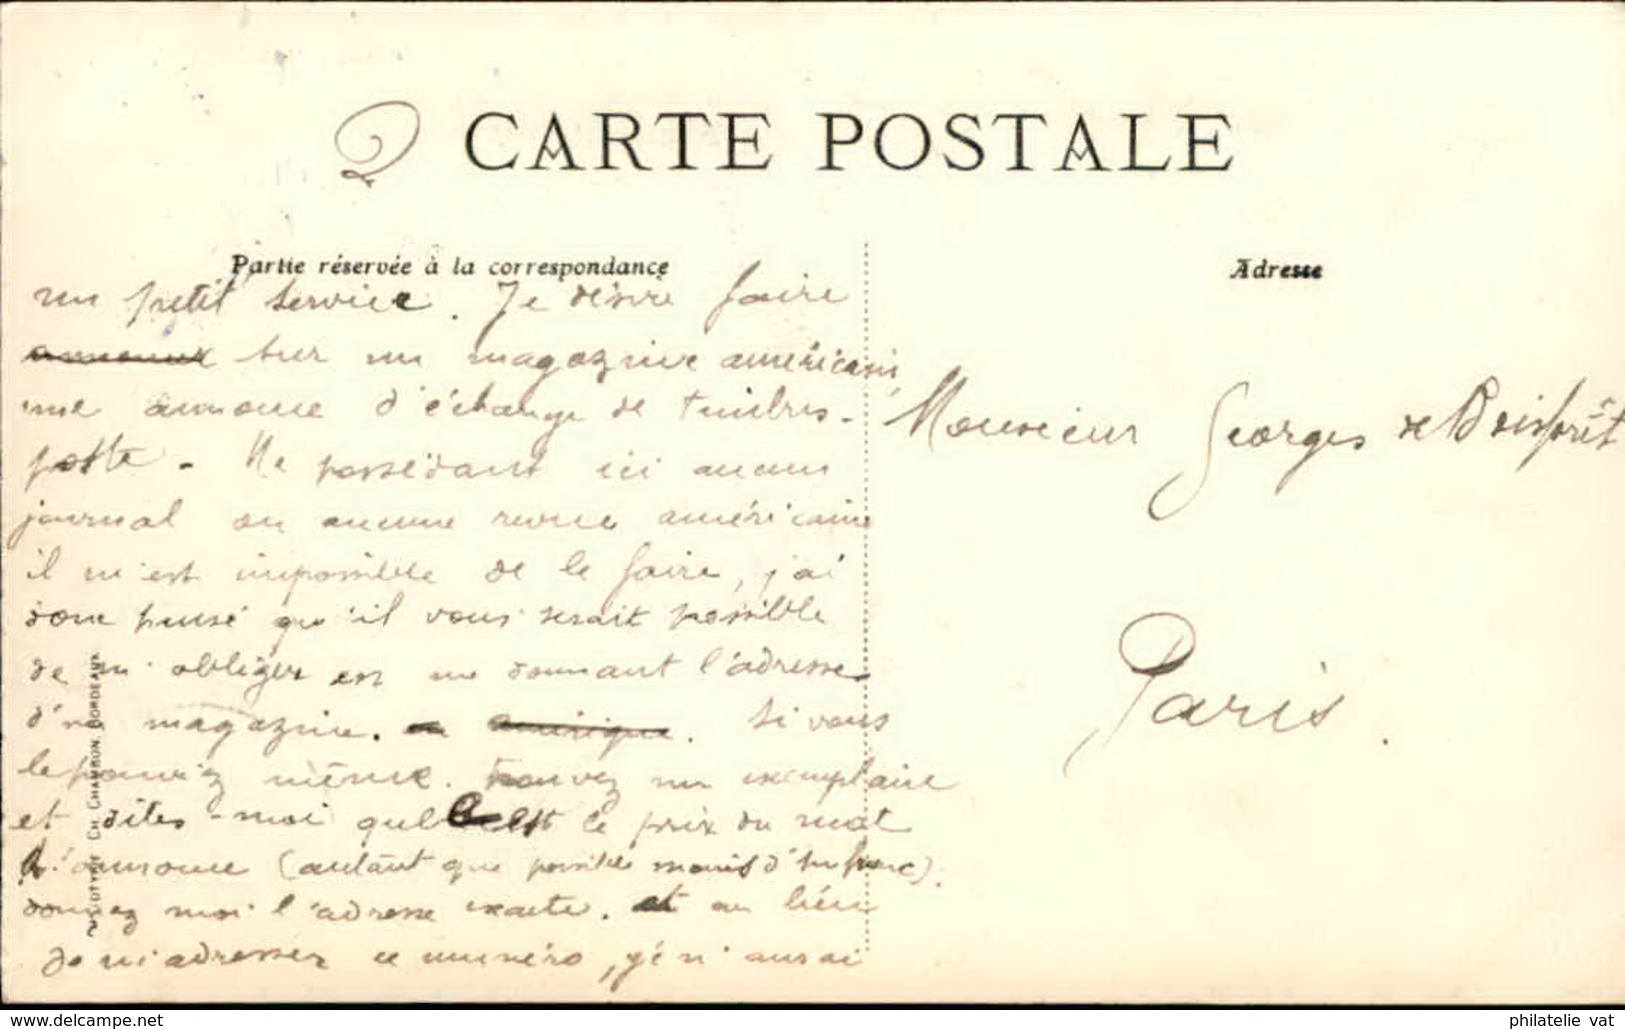 2 CARTE POSTALE
Partie réservée à la correspondance
Adresse
un petit service. Je désire faire
sur un magazine américain,
une annonce d'échange de timbres-
poste. Ne possédant ici aucun
journal ou aucune revue américaine
il m'est impossible de le faire, j'ai
donc pensé qu'il vous serait possible
de m'obliger en me donnant l'adresse
d'un magazine. Si vous
le pouviez même. trouvez un exemplaire
et dites-moi quel est le prix du mot
d'annonce (autant que possible moins d'un franc).
donnez moi l'adresse exacte. et au lieu
de m'adresser ce numéro, je n'aurai
Monsieur Georges de Boisforêt
Paris.
PHOTOTYPIE CH. CHAMBON, BORDEAUX
www.delcampe.net
philatelie vat